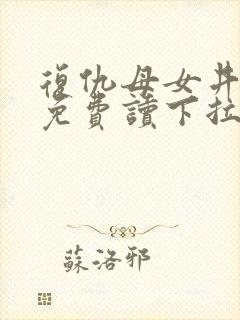 復仇母女丼
免費讀下拉
蘇洛邪